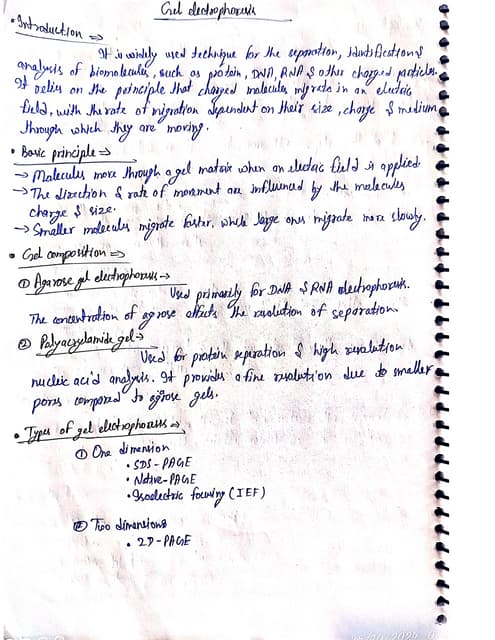 Gel electrophoresis
• Introduction ⇒
It is widely used technique for the separation, identification &
analysis of biomolecules, such as protein, DNA, RNA & other charged particles.
It relies on the principle that charged molecules migrate in an electric
field, with the rate of migration dependent on their size, charge & medium
through which they are moving.
• Basic principle ⇒
→ Molecules move through a gel matrix when an electric field is applied.
→ The direction & rate of movement are influenced by the molecules
charge & size.
→ Smaller molecules migrate faster, while large ones migrate more slowly.
• Gel composition ⇒
① Agarose gel electrophoresis →
Used primarily for DNA & RNA electrophoresis.
The concentration of agrose affects the resolution of separation.
② Polyacrylamide gel →
Used for protein separation & high resolution
nucleic acid analysis. It provides a fine resolution due to smaller
pores compared to agrose gels.
• Types of gel electrophoresis ⇒
① One dimension
• SDS-PAGE
• Native-PAGE
• Isoelectric focusing (IEF)
② Two dimensions
• 2D-PAGE